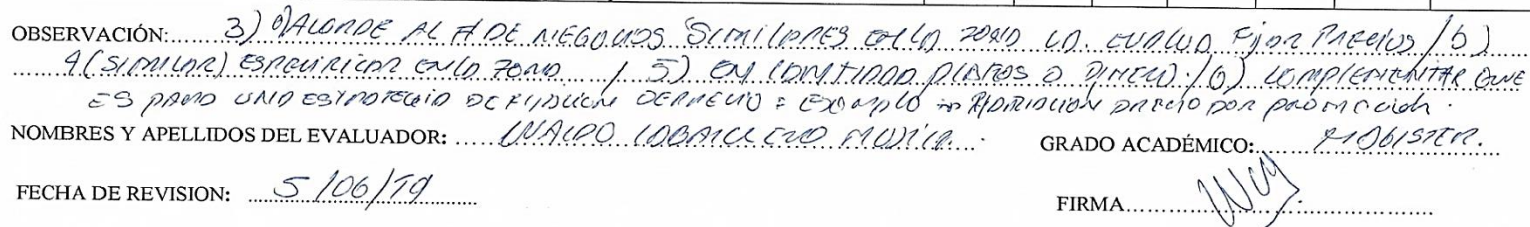 OBSERVACIÓN: 3) DE NEGOCIOS SIMILARES EN LA ZONA FIJAR PRECIOS / b)
4 (SIMILAR) ESPECIFICAR EN LA ZONA / 5) EN CANTIDAD PLATOS O DINERO. / 6) COMPLEMENTAR QUE
ES PARA UNA ESTRATEGIA DE FIJACION DE PRECIO = EXAMPLO PRECIO POR PROMOCION.
NOMBRES Y APELLIDOS DEL EVALUADOR: GRADO ACADÉMICO: MAGISTER.
FECHA DE REVISION: 5/06/19 FIRMA